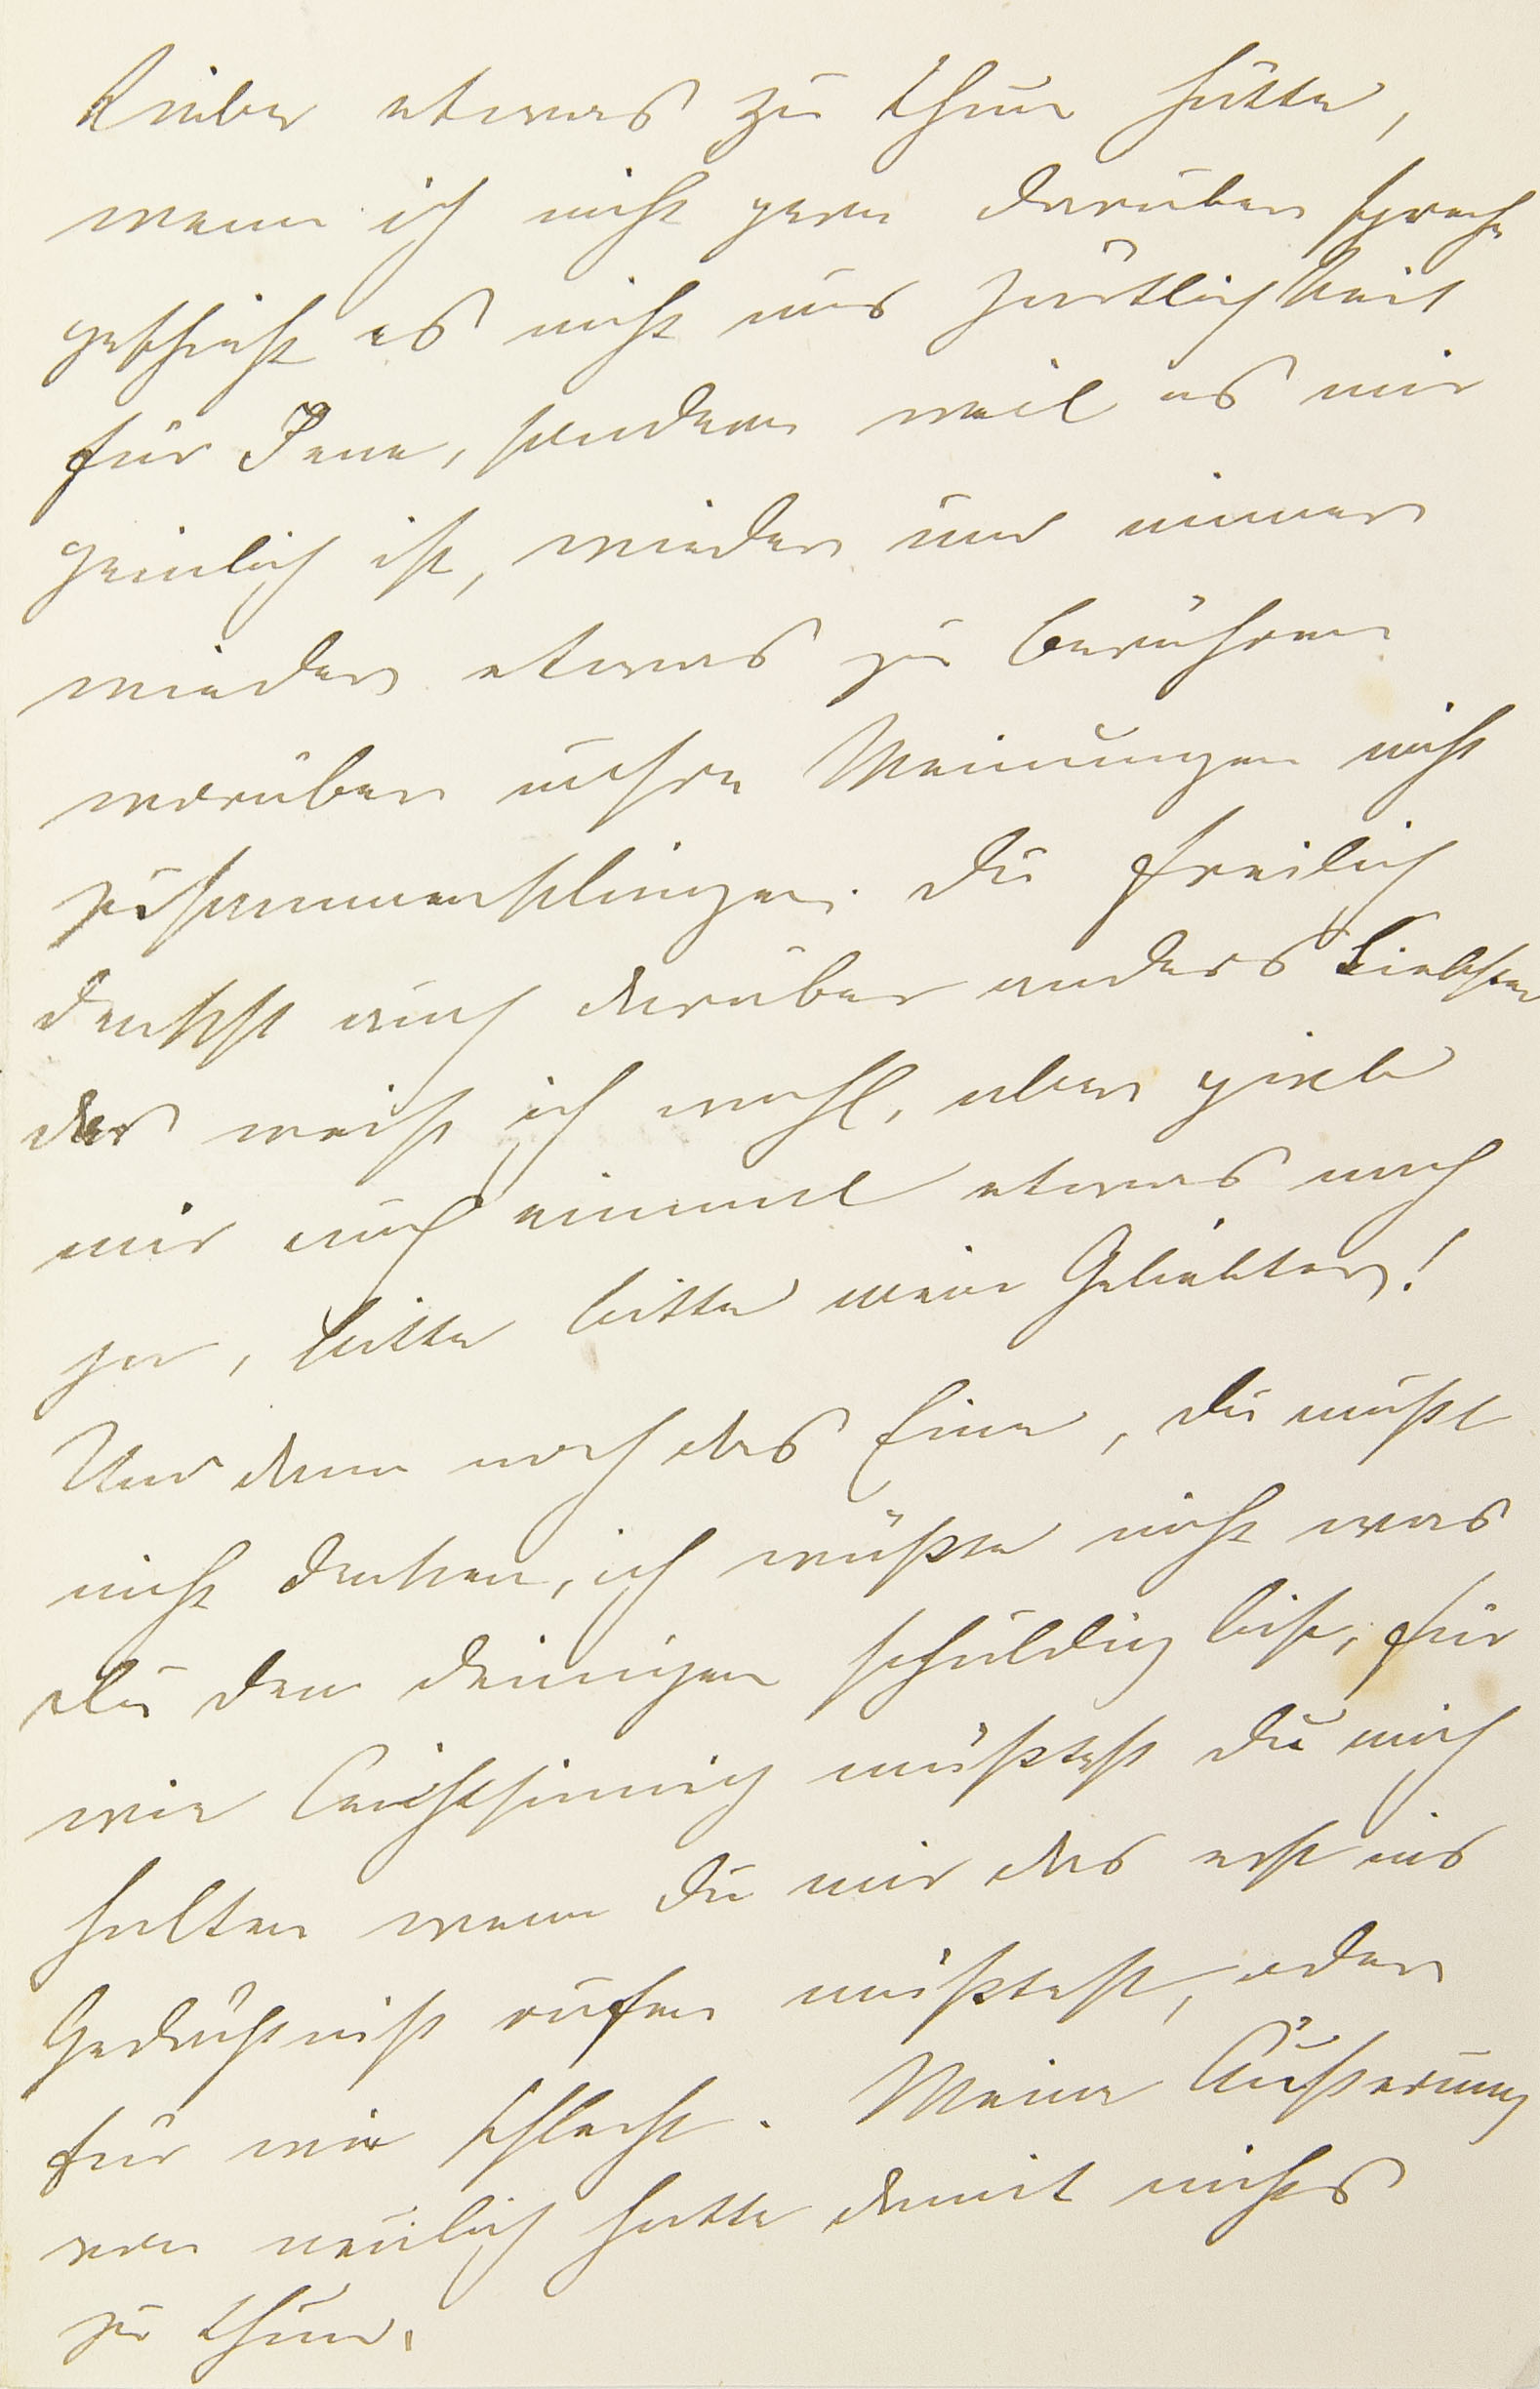 lieber etwas zu thun hätte,
wenn ich nicht gern darüber spreche
geschieht es nicht aus Zärtlichkeit
für Jene, sondern weil es mir
peinlich ist, wieder und immer
wieder etwas zu berühren
worüber unsre Meinungen nicht
zusammenklingen. Du freilich
denkst auch darüber anders Liebster
das weiß ich wohl, aber gieb
mir auch einmal etwas nach
ja, bitte bitte mein Geliebter!
Und dann noch das Eine, Du mußt
nicht denken, ich wüßte nicht was
Du den Deinigen schuldig bist, für
wie leichtsinnig müßtest Du mich
halten wenn Du mir das erst ins
Gedächtniß rufen müßtest, oder
für wie schlecht. Meine Äußerung
von neulich hatte damit nichts
zu thun.